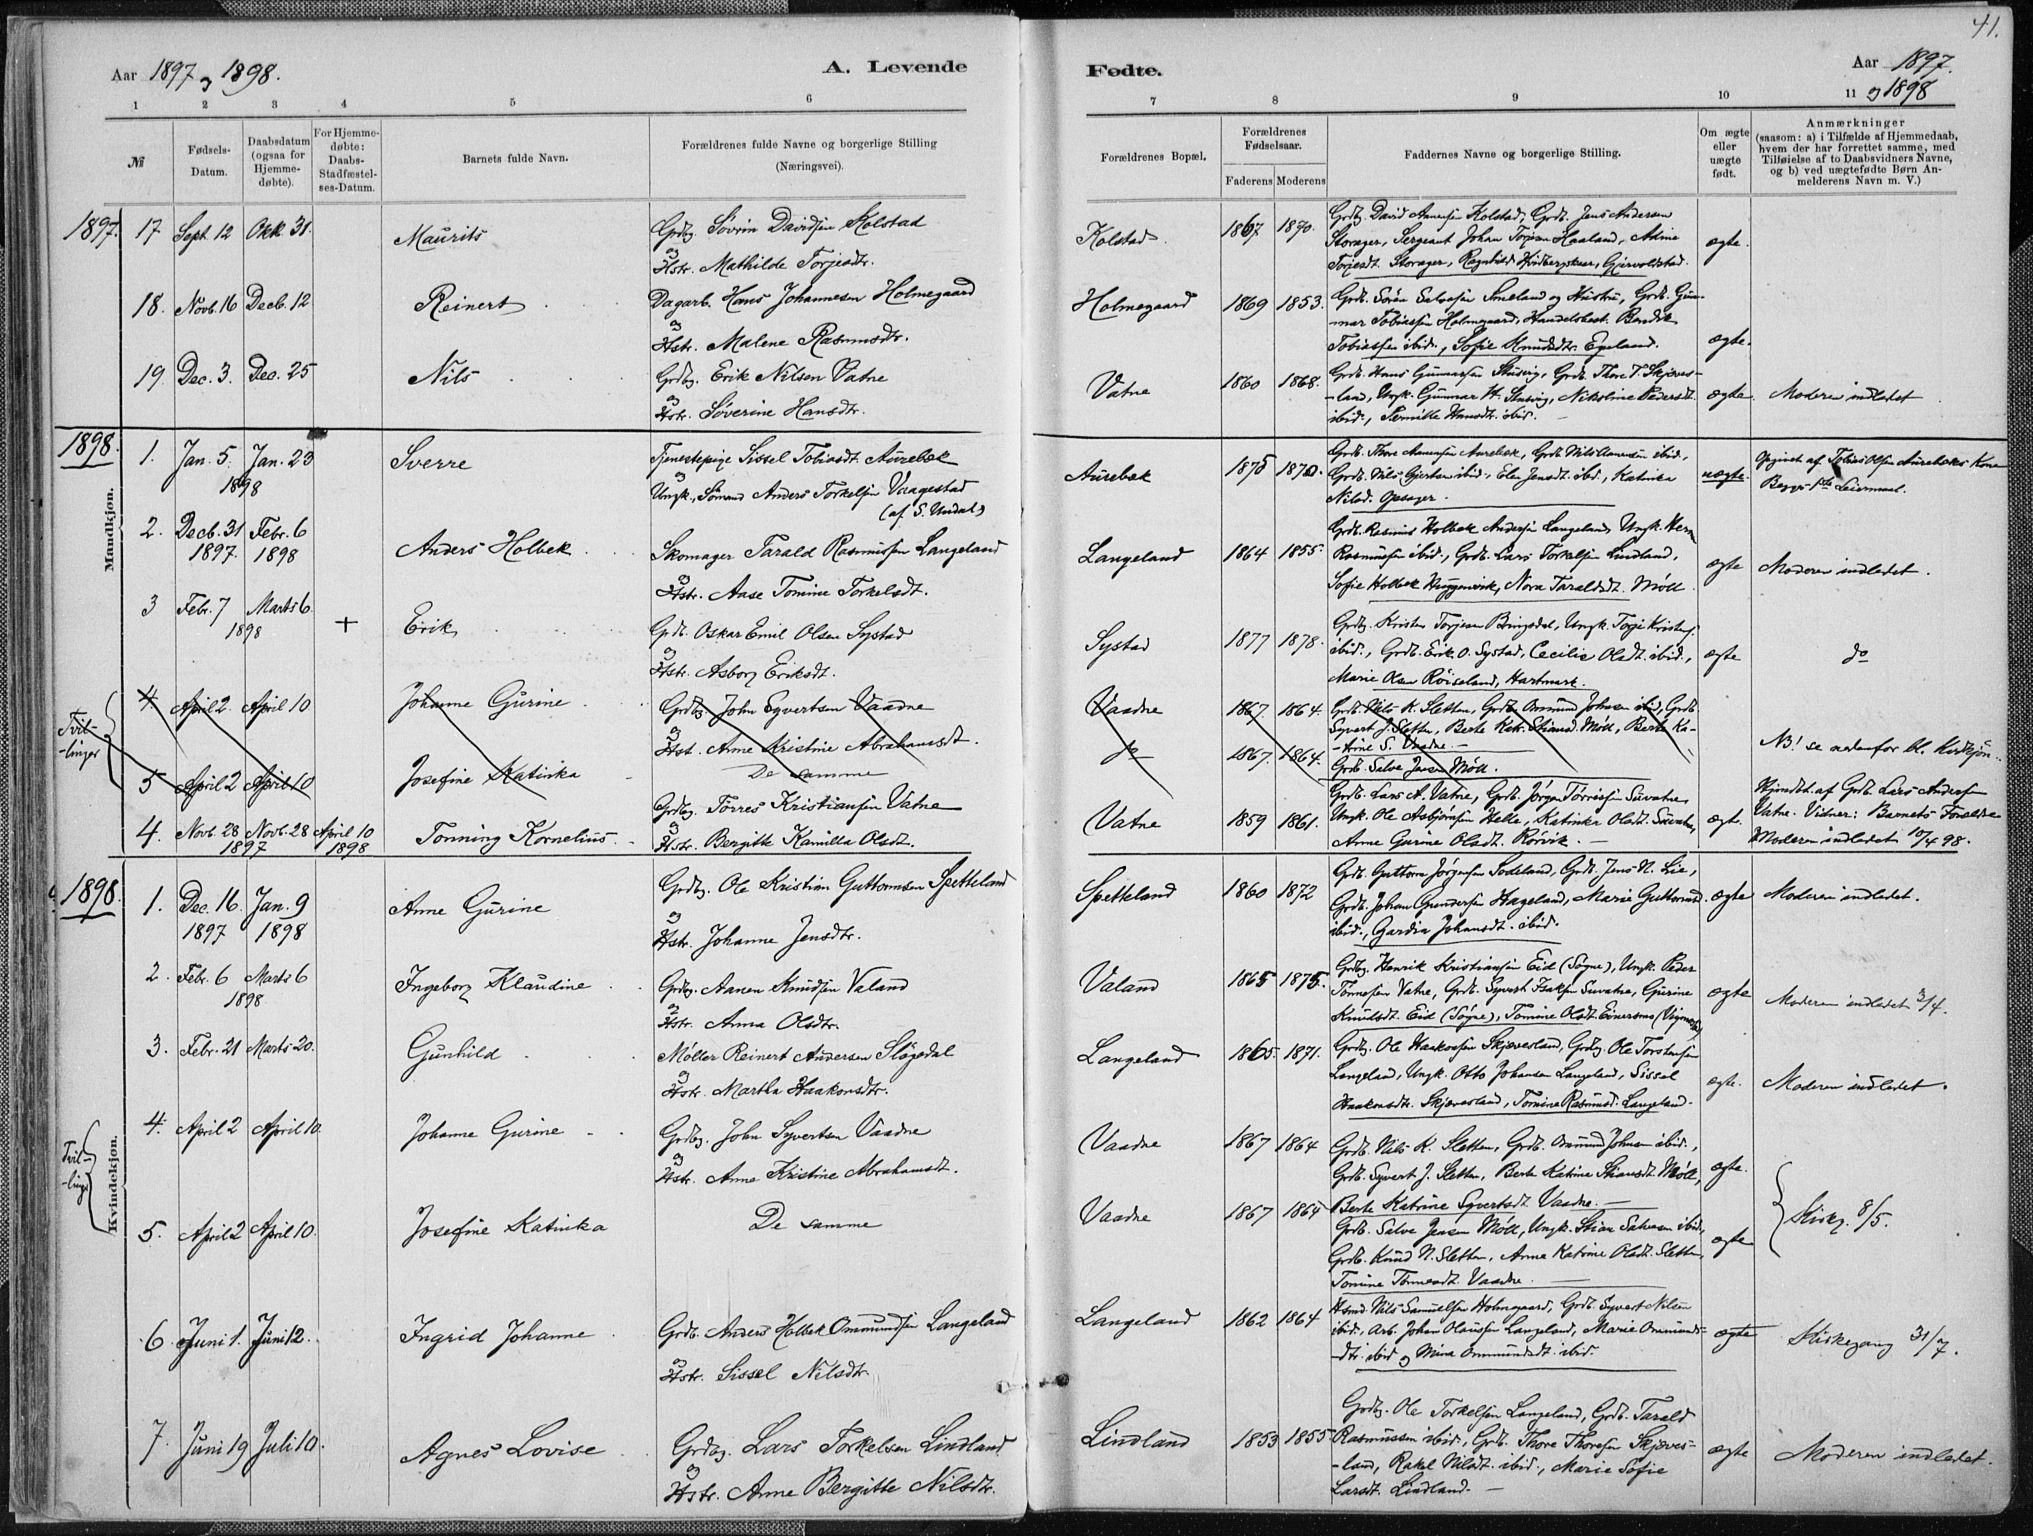 41.
Aar 1897 og 1898.
A. Levende
Fødte.
Aar 1897.
og 1898
1 2 3 4 5 6 7 8 9 10 11
№
Fødsels-
Datum.
Daabsdatum
(ogsaa for
Hjemme-
døbte).
For Hjemme-
døbte:
Daabs-
Stadfæstel-
ses-Datum.
Barnets fulde Navn.
Forældrenes fulde Navne og borgerlige Stilling
(Næringsvei).
Forældrenes Bopæl.
Forældrenes
Fødselsaar.
Faderens Moderens
Faddernes Navne og borgerlige Stilling.
Om ægte
eller
uægte
født.
Anmærkninger
(saasom: a) i Tilfælde af Hjemmedaab,
hvem der har forrettet samme, med
Tilføielse af to Daabsvidners Navne,
og b) ved uægtefødte Børn An-
melderens Navn m. V.)
Mandkjøn.
1897. 17 Sept. 12 Okt. 31. Maurits
Grdbg. Søvrin Davidsen Kolstad
og
Hstr. Mathilde Torjesdtr.
Kolstad. 1867 1870.
Grdbg. David Aanensen Kolstad, Grdb. Jens Andersen
Storager, Sergeant Johan Torjesen Haaland, Adine
Torjesdt. Storager, Ragnhild
ægte.
18. Novb. 16 Decb. 12 Reinert
Dagarb. Hans Johannesen Holmegaard
og
Hstr. Malene Rasmusdtr.
Holmegaard 1869 1853.
Grdb. Søren Salvesen Smeland og Hustru, Grdb. Gun-
nar Tobiassen Holmegaard, Handelsbest. Bendik
Tobiassen ibid., Sofie Knudsdtr. Egeland.
ægte.
19. Dec. 3. Dec. 25 Nils
Grdbg. Erik Nilsen Vatne
og
Hstr. Søverine Hansdtr.
Vatne 1860 1868.
Grdb. Hans Gunnarsen Stusvig, Grdb. Thore T. Skjæves-
-land, Ungk. Gunnar H. Stusvig, Nikoline Pedersdt.
ibid., Pernille Hansdt. ibid.
ægte. Moderen indledet
1898. 1. Jan. 5. Jan. 23 Sverre
1898
Tjenestepige Sissel Tobiasdt. Aurebæk
og
Ungk., Sømand Anders Torkelsen Vaagestad
(af S. Undal)
Aurebæk 1875 1870.
Grdb. Thore Aanensen Aurebæk, Grdb. Nils Aanensen ibid.,
Grdb. Nils Gjertsen ibid., Elen Jensdt. ibid., Katinka
Nilsd. Opsager.
uægte. Opgivet af Tobias Olsen Aurebæks Kone
Begges 1ste Leiermaal.
2. Decb. 31 Febr. 6 Anders Holbek
1897. 1898
Skomager Tarald Rasmussen Langeland
og
Hstr. Aase Tomine Torkelsdt.
Langeland 1864 1855.
Grdb. Rasmus Holbek Andersen Langeland, Ungk. Herm
Rasmussen ibid., Grdb. Lars Torkelsen Lindland,
Sofie Holbek Huggenvik, Nora Taraldsdt. Möll
ægte Moderen indledet.
3 Febr. 7 Marts 6. + Erik
1898
Grdb. Oskar Emil Olsen Systad
og
Hstr. Asborg Eriksdt.
Systad 1877 1878.
Grdbg. Kristen Torjesen Bringsdal, Ungk. Togi Kristens.
ibid., Grdb. Erik O. Systad, Cecilie Olsdt. ibid.,
Marie Olsen Røiseland, Hartmark.
ægte do
Tvil-
-linger
4. April 2. April 10 Johanne Gurine
Grdbg. John Syvertsen Vaadne
og
Hst. Anne Kristine Abrahamsdt.
Vaadne 1867. 1864.
Grdb. Nils K. Sletten, Grdb. Ommund Johnsen ibid., Grdb.
Syvert J. Sletten, Berte Katr. Stiansd. Möll, Berte Ka-
-trine S. Vaadne
5 April 2 April 10 Josefine Katinka
De samme
do 1867. 1864.
Grdb. Salve Jensen Möll.
NB! se nedenfor bl. Kvidkjøn
4. Novb. 28 Novb. 28 April 10 Tonning Kornelius
1897 1898
Grdbg. Tørres Kristiansen Vatne
og
Hstr. Bergitte Kamilla Olsdt.
Vatne 1859 1861.
Grdb. Lars A. Vatne, Grdb. Jørgen Tørressen Suvatne,
Ungk. Ole Asbjørnsen Helle, Katinka Olsdt. Suvatne,
Anne Gurine Olsdt. Rørvik.
ægt. Hjemdbt. af Grdb. Lars Andersen
Vatne. Vidner: Barnets Forældre
Moderen indledet 10/4 98.
Kvindekjøn.
1898. 1. Dec. 16. Jan. 9 Anne Gurine
1897 1898
Grdbg. Ole Kristian Guttormsen Spetteland
og
Hstr. Johanne Jensdtr.
Spetteland 1860 1872
Grdb. Guttorm Jørgensen Sodeland, Grdb. Jens N. Lie,
Grdb. Johan Gundersen Hageland, Marie Guttormsd.
ibid., Gardia Johansdt. ibid.
ægte Moderen indledet.
2. Febr. 6 Marts 6 Ingeborg Klaudine
1898.
Grdbg. Aanen Knudsen Valand
og
Hstr. Anna Olsdtr.
Valand 1865 1875.
Grdbg. Henrik Kristiansen Eid (Søgne), Ungk. Peder
Tønnesen Vatne, Grdb. Syvert Isaksen Suvatne, Gurine
Knudsdt. Eid (Søgne), Tomine Olsdt.
ægte Moderen indledet 3/4.
3. Febr. 21 Marts 20. Gunhild
Møller Reinert Andersen Sløgedal
og
Hstr. Martha Haakonsdtr.
Langeland 1865. 1871.
Grdbg. Ole Haakonsen Skjævesland, Grdbg. Ole Torstensen
Langeland, Ungk. Otto Johansen Langeland, Sissel
Haakonsdtr. Skjævesland, Tomine Rasmusd. Langeland.
ægte. Moderen indledet.
Tvil-
-linge
4. April 2 April 10. Johanne Gurine
Grdbg. John Syvertsen Vaadne
og
Hstr. Anne Kristine Abrahamsdt.
Vaadne 1867 1864
Grdb. Nils K. Sletten, Grdb. Ommund Johnsen ibid.,
Grdb. Syvert J. Sletten, Berte Katrine Stiansdt. Möll,
Berte Katrine Syvertsdt. Vaadne.
ægte.
5. April 2 April 10. Josefine Katinka
De samme
Vaadne 1867 1864
Grdb. Salve Jensen Möll, Ungk. Stian Salvesen ibid.,
Grdb. Knud N. Sletten, Anne Katrine Olsdt. Sletten,
Tomine Tønnesdt. Vaadne.
ægte Kirkeg. 8/5.
6 Juni 1. Juni 12. Ingrid Johanne
Grdb. Anders Holbek Ommundsen Langeland
og
Hstr. Sissel Nilsdtr
Langeland 1862 1864
Husmd. Nils Samuelsen Holmegaard, Grdb. Syvert Nilsen
ibid., Arb. Johan Olaussen Langeland, Marie Ommunds-
-dtr. ibid og Mina Ommundsdt. ibid.
ægte Kirkegang 31/7.
7. Juni 19 Juli 10. Agnes Lovise
Grdbg. Lars Torkelsen Lindland
og
Hstr. Anne Bergitte Nilsdtr.
Lindland 1853 1855
Grdbg. Ole Torkelsen Langeland, Grdb. Tarald
Rasmussen ibid., Grdb. Thore Thoresen Skjæves-
-land, Rakel Nilsdt. ibid., Marie Sofie
Larsdt. Lindland.
ægte Moderen indledet.